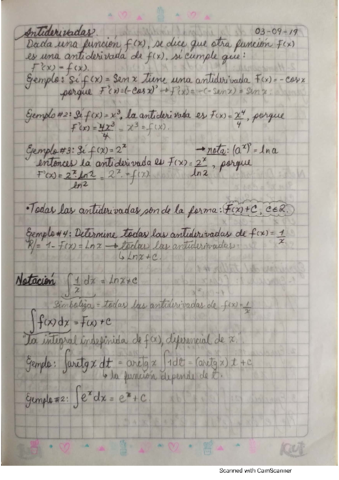 Antiderivadas 03-09-19
Dada una función f(x), se dice que otra función F(x)
es una antiderivada de f(x), si cumple que:
F'(x) = f(x).
Ejemplo: Si f(x) = Sen x tiene una antiderivada F(x) = -cos x
porque F'(x) = (-cos x)' → F'(x) = -(-sen x) = Sen x
Ejemplo #2: Si f(x) = x³, la antiderivada es F(x) = x⁴/4, porque
F'(x) = 4x³/4 = x³ = f(x).
Ejemplo #3: Si f(x) = 2ˣ → nota: (aˣ)' = ln a
entonces la antiderivada es F(x) = 2ˣ/ln2, porque
F'(x) = 2ˣ ln2/ln2 = 2ˣ = f(x)
• Todas las antiderivadas son de la forma: F(x) + C, C∈R.
Ejemplo #4: Determine todas las antiderivadas de f(x) = 1/x
R/= 1- F(x) = Ln x → todas las antiderivadas:
↳ Ln x + C.
Notación ∫ 1/x dx = Ln x + C
Simboliza = todas las antiderivadas de f(x) = 1/x
∫ f(x) dx = F(x) + C
la integral indefinida de f(x), diferencial de x
Ejemplo: ∫ arctg x dt = arctg x ∫ 1 dt = (arctg x) t + C
↳ la función depende de t.
Ejemplo #2: ∫ eˣ dx = eˣ + C
Scanned with CamScanner